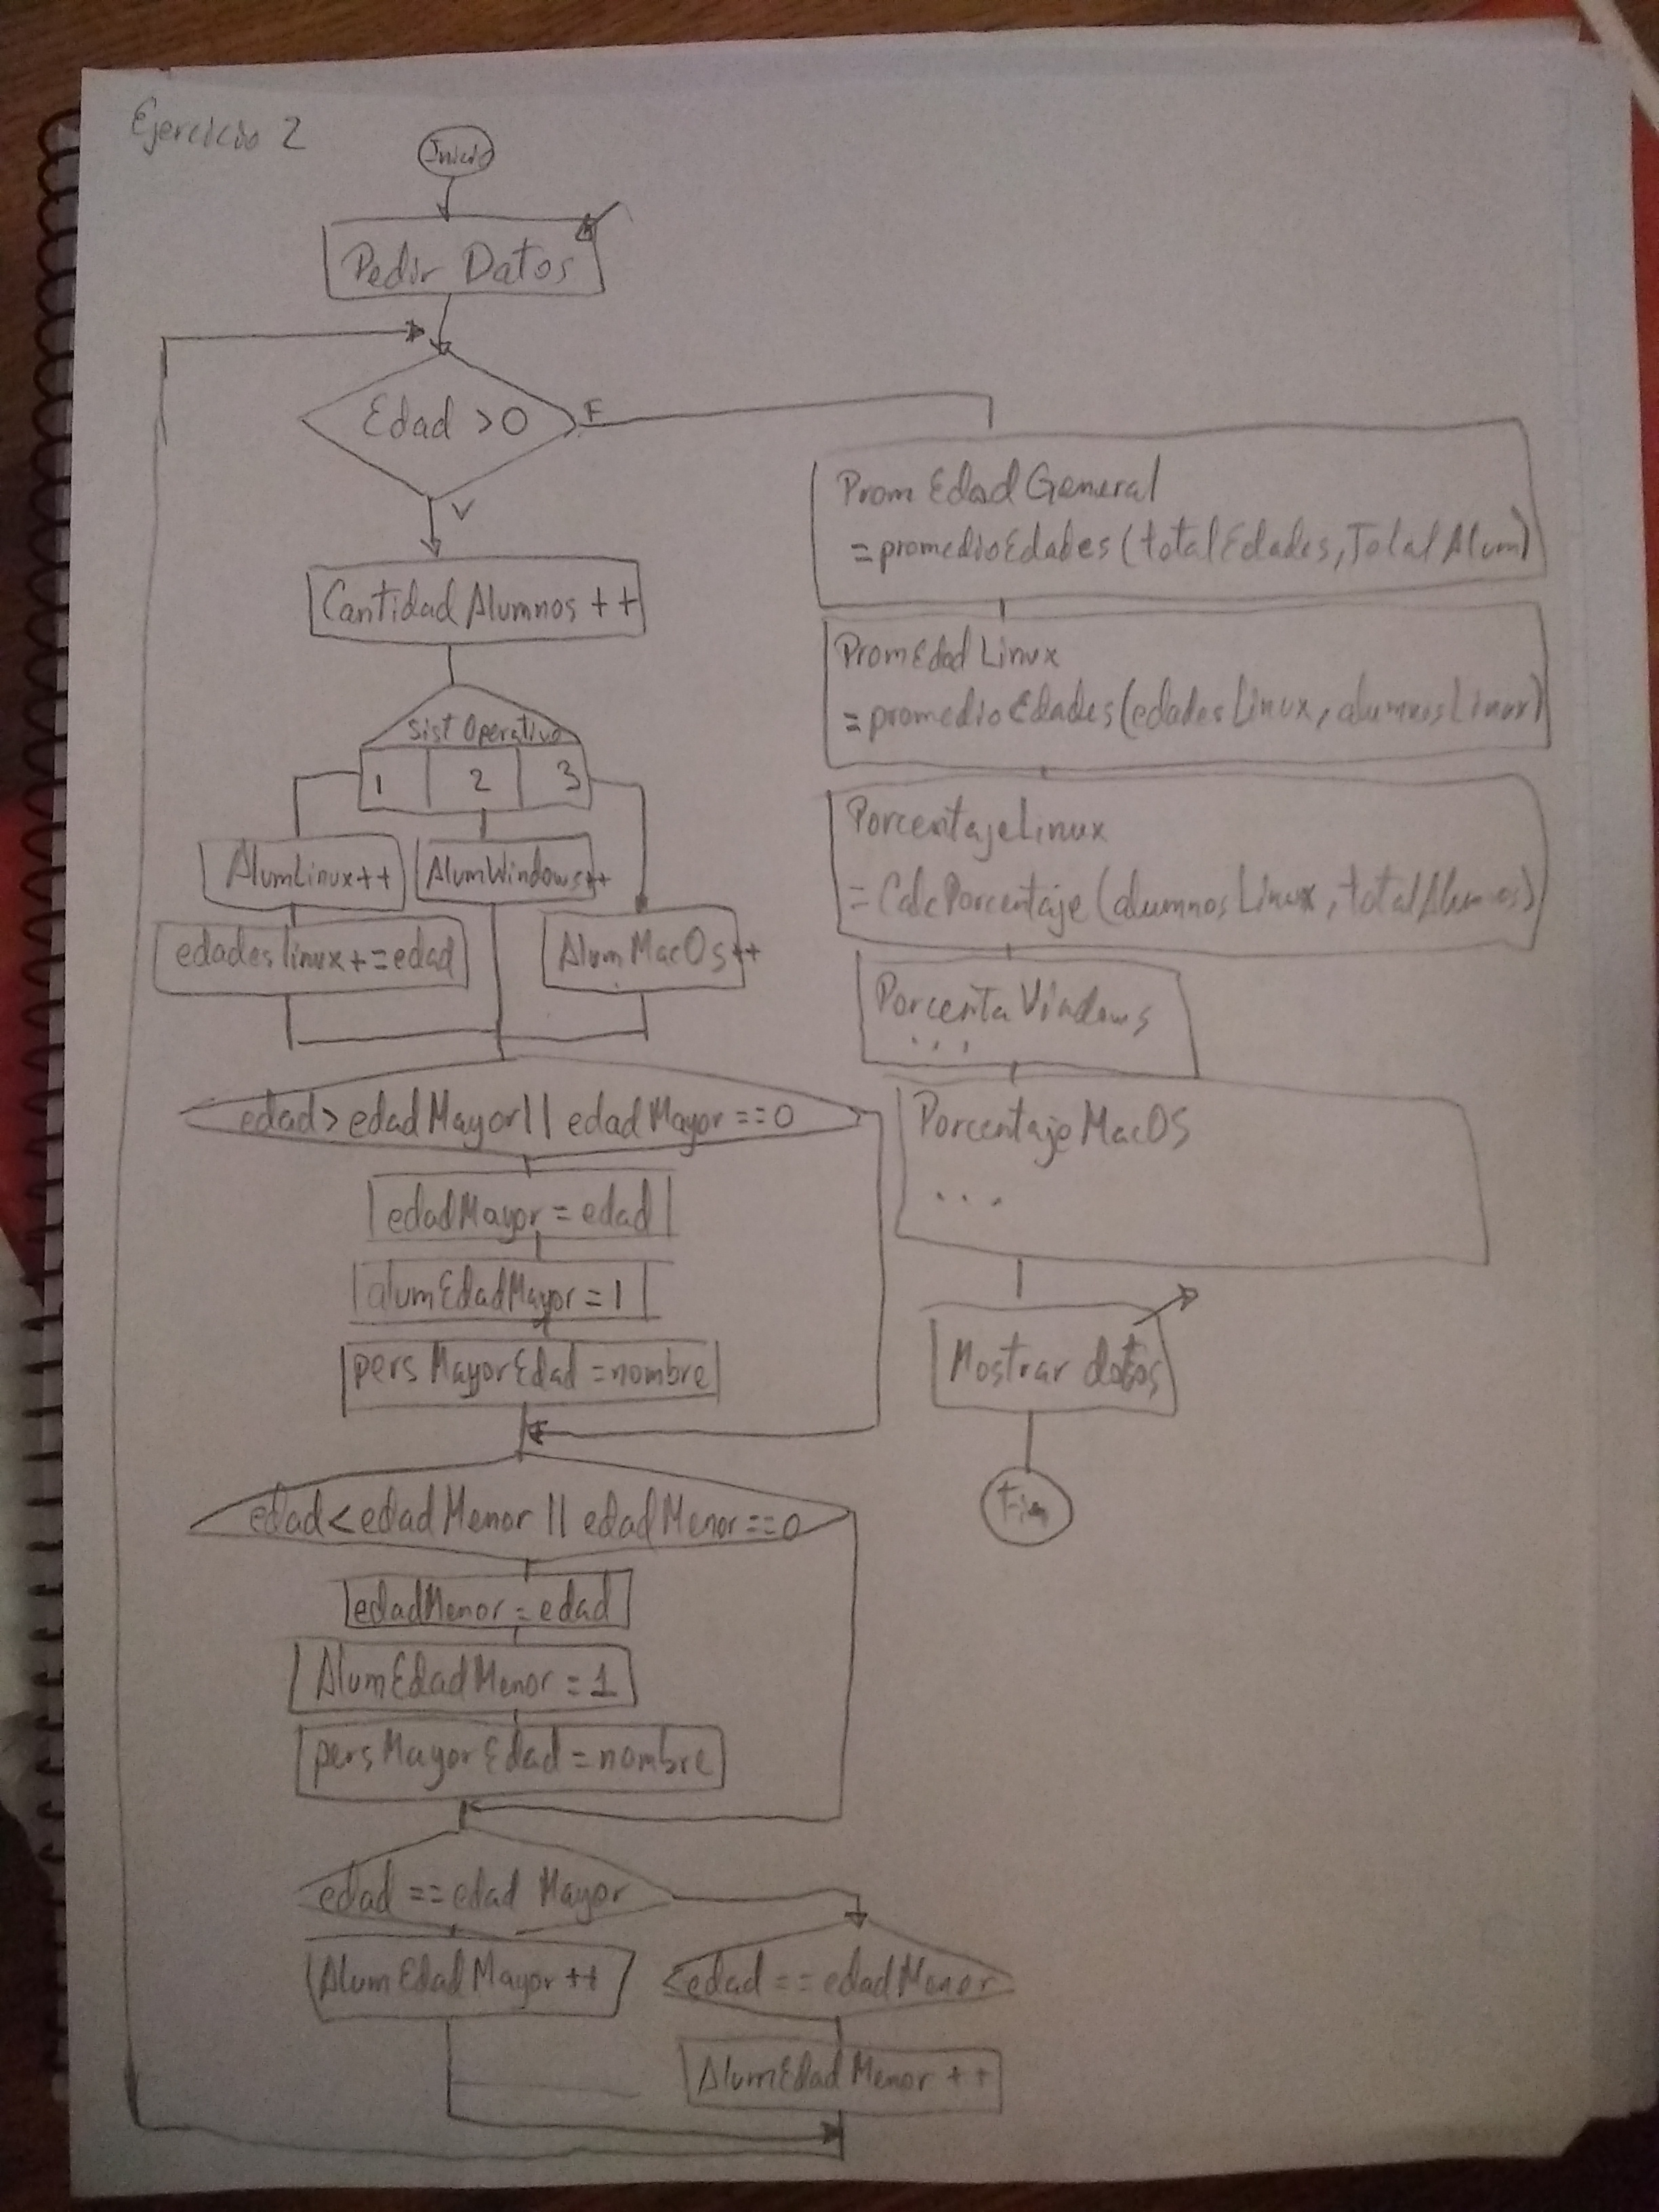 Ejercicio 2
Inicio
Pedir Datos
Edad >0
F
V
CantidadAlumnos ++
sist Operativo
1 2 3
AlumLinux++
AlumWindows++
edadeslinux+=edad
AlumMacOs++
edad>edadMayor|| edadMayor==0
edadMayor = edad
alumEdadMayor=1
persMayorEdad=nombre
edad<edadMenor || edadMenor==0
edadMenor=edad
AlumEdadMenor=1
persMayorEdad=nombre
edad ==edad Mayor
AlumEdadMayor++
edad==edadMenor
AlumEdadMenor ++
Prom EdadGeneral
=promedioEdades(totalEdades,TotalAlum)
PromEdadLinux
=promedioEdades(edadesLinux,alumnosLinux)
PorcentajeLinux
=CalcPorcentaje(alumnosLinux,totalAlumnos)
PorcentaVindows
...
PorcentajeMacOS
...
Mostrar datos
Fin